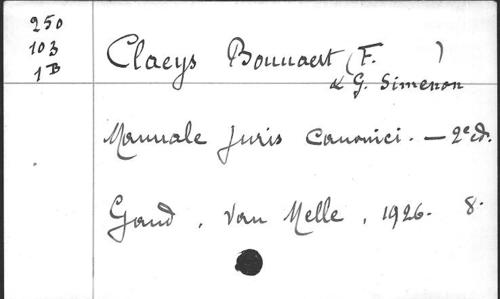 250
103
1B
Claeys Bouuaert (F. )
& G. Simenon
Manuale Juris Canonici. — 2e éd.
Gand, Van Melle, 1926. 8.